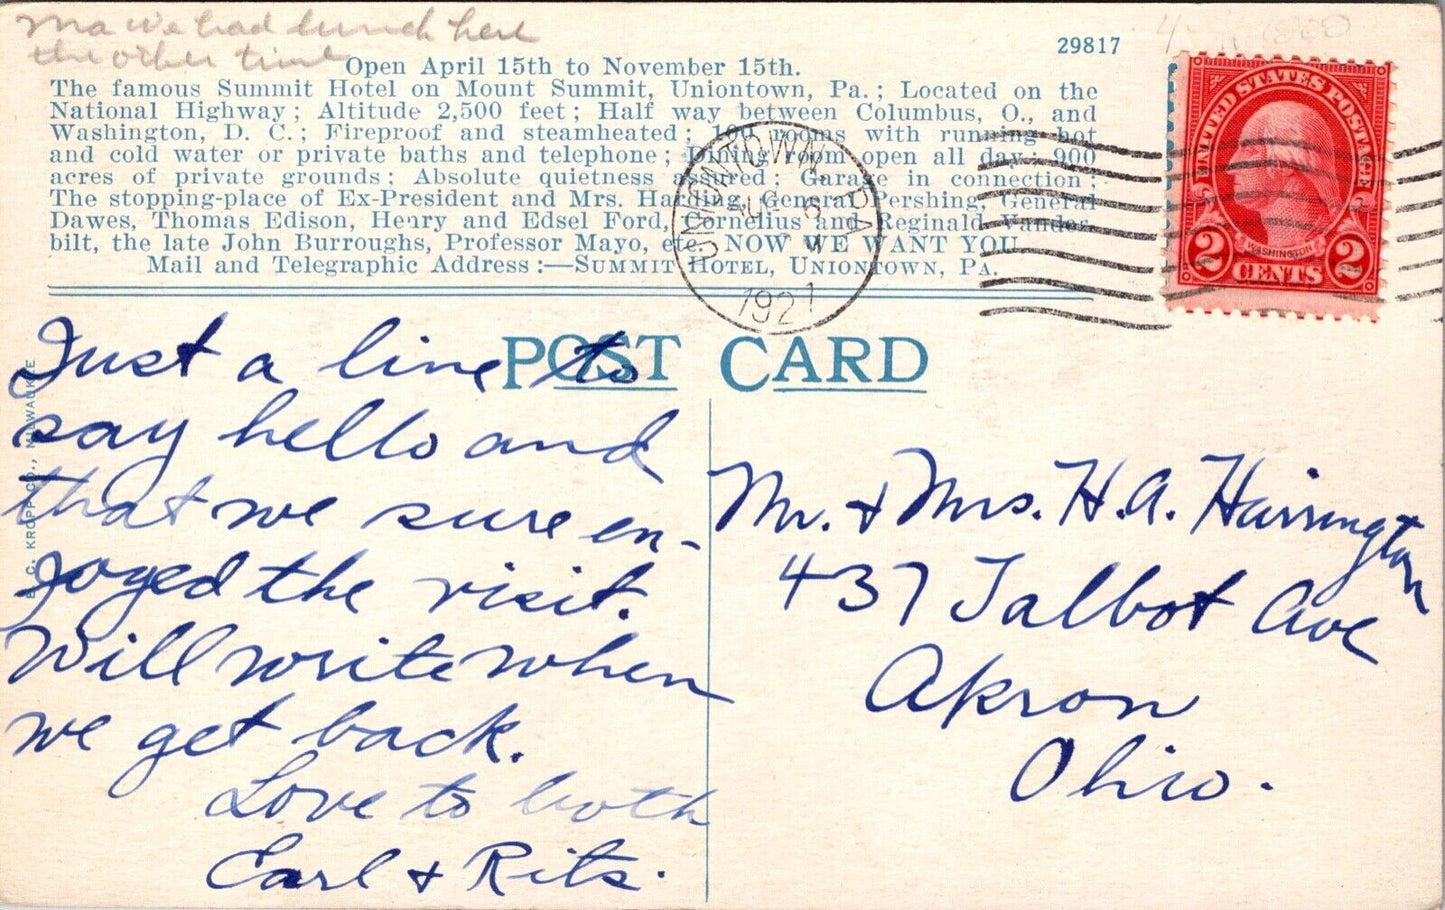 Ma we had lunch here
the other time
29817
Open April 15th to November 15th.
The famous Summit Hotel on Mount Summit, Uniontown, Pa.; Located on the
National Highway; Altitude 2,500 feet; Half way between Columbus, O., and
Washington, D. C.; Fireproof and steamheated; 100 rooms with running hot
and cold water or private baths and telephone; Dining room open all day; 900
acres of private grounds; Absolute quietness assured; Garage in connection;
The stopping-place of Ex-President and Mrs. Harding, General Pershing, General
Dawes, Thomas Edison, Henry and Edsel Ford, Cornelius and Reginald Vander-
bilt, the late John Burroughs, Professor Mayo, etc. NOW WE WANT YOU
Mail and Telegraphic Address:—SUMMIT HOTEL, UNIONTOWN, PA.
UNIONTOWN, PA.
1927
UNITED STATES POSTAGE
WASHINGTON
2 CENTS 2
POST CARD
E. C. KROPP CO., MILWAUKEE
Just a line to
say hello and
that we sure en-
joyed the visit.
Will write when
we get back.
Love to both
Earl + Rita.
Mr. + Mrs. H. A. Harrington
437 Talbot Ave
Akron
Ohio.